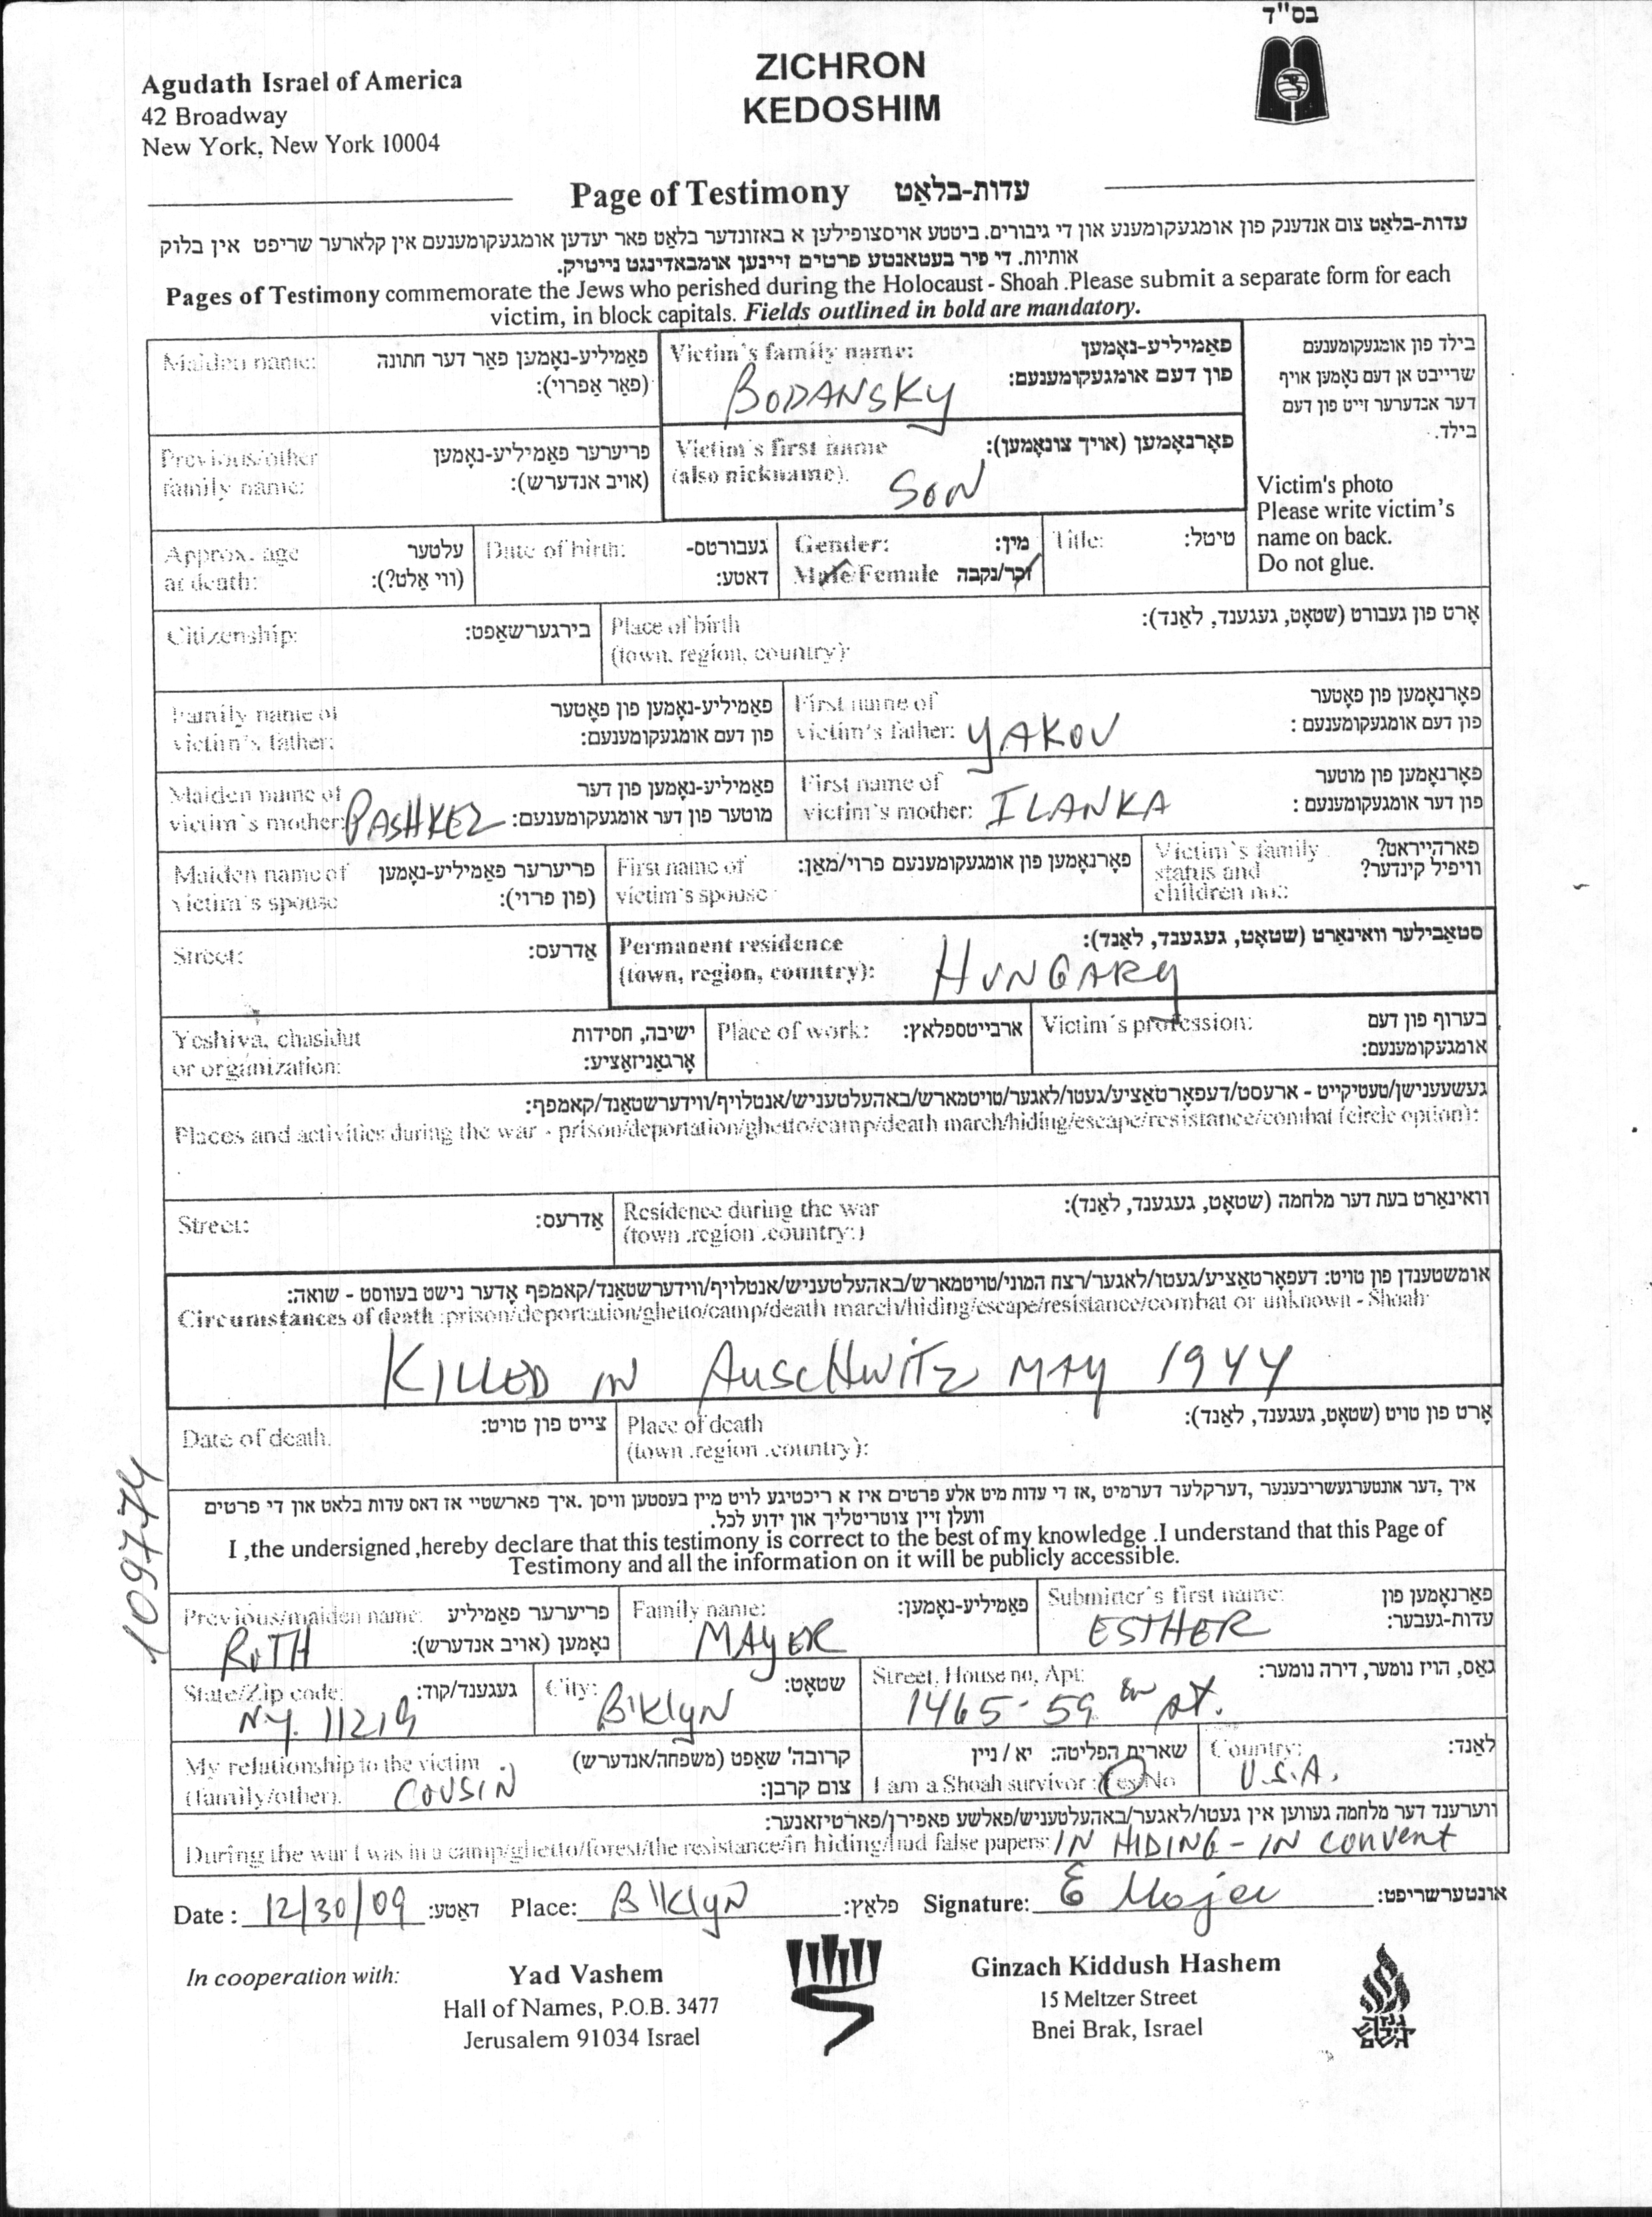 בס"ד
Agudath Israel of America
42 Broadway
New York, New York 10004
ZICHRON
KEDOSHIM
Page of Testimony עדות-בלאַט
עדות-בלאַט צום אנדענק פון אומגעקומענע און די גיבורים. ביטטע אויסצופילען א באזונדער בלאַט פאר יעדען אומגעקומענעם אין קלארער שריפט אין בלוק
אותיות. די פיר בעטאנטע פרטים זיינען אומבאדינגט נייטיק.
Pages of Testimony commemorate the Jews who perished during the Holocaust - Shoah .Please submit a separate form for each
victim, in block capitals. Fields outlined in bold are mandatory.
Maiden name: פאַמיליע-נאָמען פאַר דער חתונה
(פאַר אַפרוי):
Victim's family name: פאַמיליע-נאָמען
פון דעם אומגעקומענעם:
BODANSKY
בילד פון אומגעקומענעם
שרייבט אן דעם נאָמען אויף
דער אנדערער זייט פון דעם
בילד.
Previous/other
family name:
פריערער פאַמיליע-נאָמען
(אויב אנדערש):
Victim's first name
(also nickname).
פאָרנאָמען (אויך צונאָמען):
SON
Victim's photo
Please write victim's
name on back.
Do not glue.
Approx. age
at death:
עלטער
(ווי אַלט?):
Date of birth: געבורטס-
דאטע:
Gender: מין:
Male/Female זכר/נקבה
Title: טיטל:
Citizenship: בירגערשאַפט:
Place of birth
(town, region, country):
אָרט פון געבורט (שטאָט, געגענד, לאַנד):
Family name of
victim's father:
פאַמיליע-נאָמען פון פאָטער
פון דעם אומגעקומענעם:
First name of
victim's father: YAKOV
פאָרנאָמען פון פאָטער
פון דעם אומגעקומענעם :
Maiden name of
victim's mother: PASHKEZ
פאַמיליע-נאָמען פון דער
מוטער פון דער אומגעקומענעם:
First name of
victim's mother: ILANKA
פאָרנאָמען פון מוטער
פון דער אומגעקומענעם :
Maiden name of
victim's spouse
פריערער פאַמיליע-נאָמען
(פון פרוי):
First name of
victim's spouse
פאָרנאָמען פון אומגעקומענעם פרוי/מאַן:
Victim's family
status and
children no.:
פארהייראט?
וויפיל קינדער?
Street: אַדרעס:
Permanent residence
(town, region, country):
סטאַבילער וואינאָרט (שטאָט, געגענד, לאַנד):
HUNGARY
Yeshiva, chasidut
or organization:
ישיבה, חסידות
אָרגאַניזאַציע:
Place of work: ארבייטספלאץ:
Victim's profession: בערוף פון דעם
אומגעקומענעם:
געשעענישן/טעטיקייט - ארעסט/דעפאָרטאַציע/געטו/לאגער/טויטמארש/באהעלטעניש/אנטלויף/ווידערשטאַנד/קאמפף:
Places and activities during the war - prison/deportation/ghetto/camp/death march/hiding/escape/resistance/combat (circle option):
Street: אַדרעס:
Residence during the war
(town .region .country:)
וואינאָרט בעת דער מלחמה (שטאָט, געגענד, לאַנד):
אומשטענדן פון טויט: דעפאָרטאַציע/געטו/לאגער/רצח המוני/טויטמארש/באהעלטעניש/אנטלויף/ווידערשטאַנד/קאמפף אָדער נישט בעוווסט - שואה:
Circumstances of death :prison/deportation/ghetto/camp/death march/hiding/escape/resistance/combat or unknown - Shoah
KILLED IN AUSCHWITZ MAY 1944
Date of death. צייט פון טויט:
Place of death
(town .region .country):
אָרט פון טויט (שטאָט, געגענד, לאַנד):
109774
איך ,דער אונטערגעשריבענער ,דערקלער דערמיט ,אז די עדות מיט אלע פרטים איז א ריכטיגע לויט מיין בעסטען וויסן .איך פארשטיי אז דאס עדות בלאט און די פרטים
וועלן זיין צוטריטליך און ידוע לכל.
I ,the undersigned ,hereby declare that this testimony is correct to the best of my knowledge .I understand that this Page of
Testimony and all the information on it will be publicly accessible.
Previous/maiden name: פריערער פאַמיליע
נאָמען (אויב אנדערש):
ROTH
Family name: פאַמיליע-נאָמען:
MAYER
Submitter's first name: פאָרנאָמען פון
עדות-געבער:
ESTHER
State/Zip code: געגענד/קוד:
N.Y. 11219
City: שטאָט:
B'KlyN
Street, House no, Apt: גאַס, הויז נומער, דירה נומער:
1465-59 st.
My relationship to the victim
(family/other). COUSIN
קרובה' שאַפט (משפחה/אנדערש)
צום קרבן:
שארית הפליטה: יא / ניין
I am a Shoah survivor :Yes/No
Country: לאַנד:
U.S.A.
ווערענד דער מלחמה געווען אין געטו/לאגער/באהעלטעניש/פאלשע פאפירן/פארטיזאנער:
During the war I was in a camp/ghetto/forest/the resistance/in hiding/had false papers: IN HIDING - IN CONVENT
Date : 12/30/09 דאַטע: Place: B'KlyN פלאַץ: Signature: E Mayer אונטערשריפט:
In cooperation with:
Yad Vashem
Hall of Names, P.O.B. 3477
Jerusalem 91034 Israel
Ginzach Kiddush Hashem
15 Meltzer Street
Bnei Brak, Israel